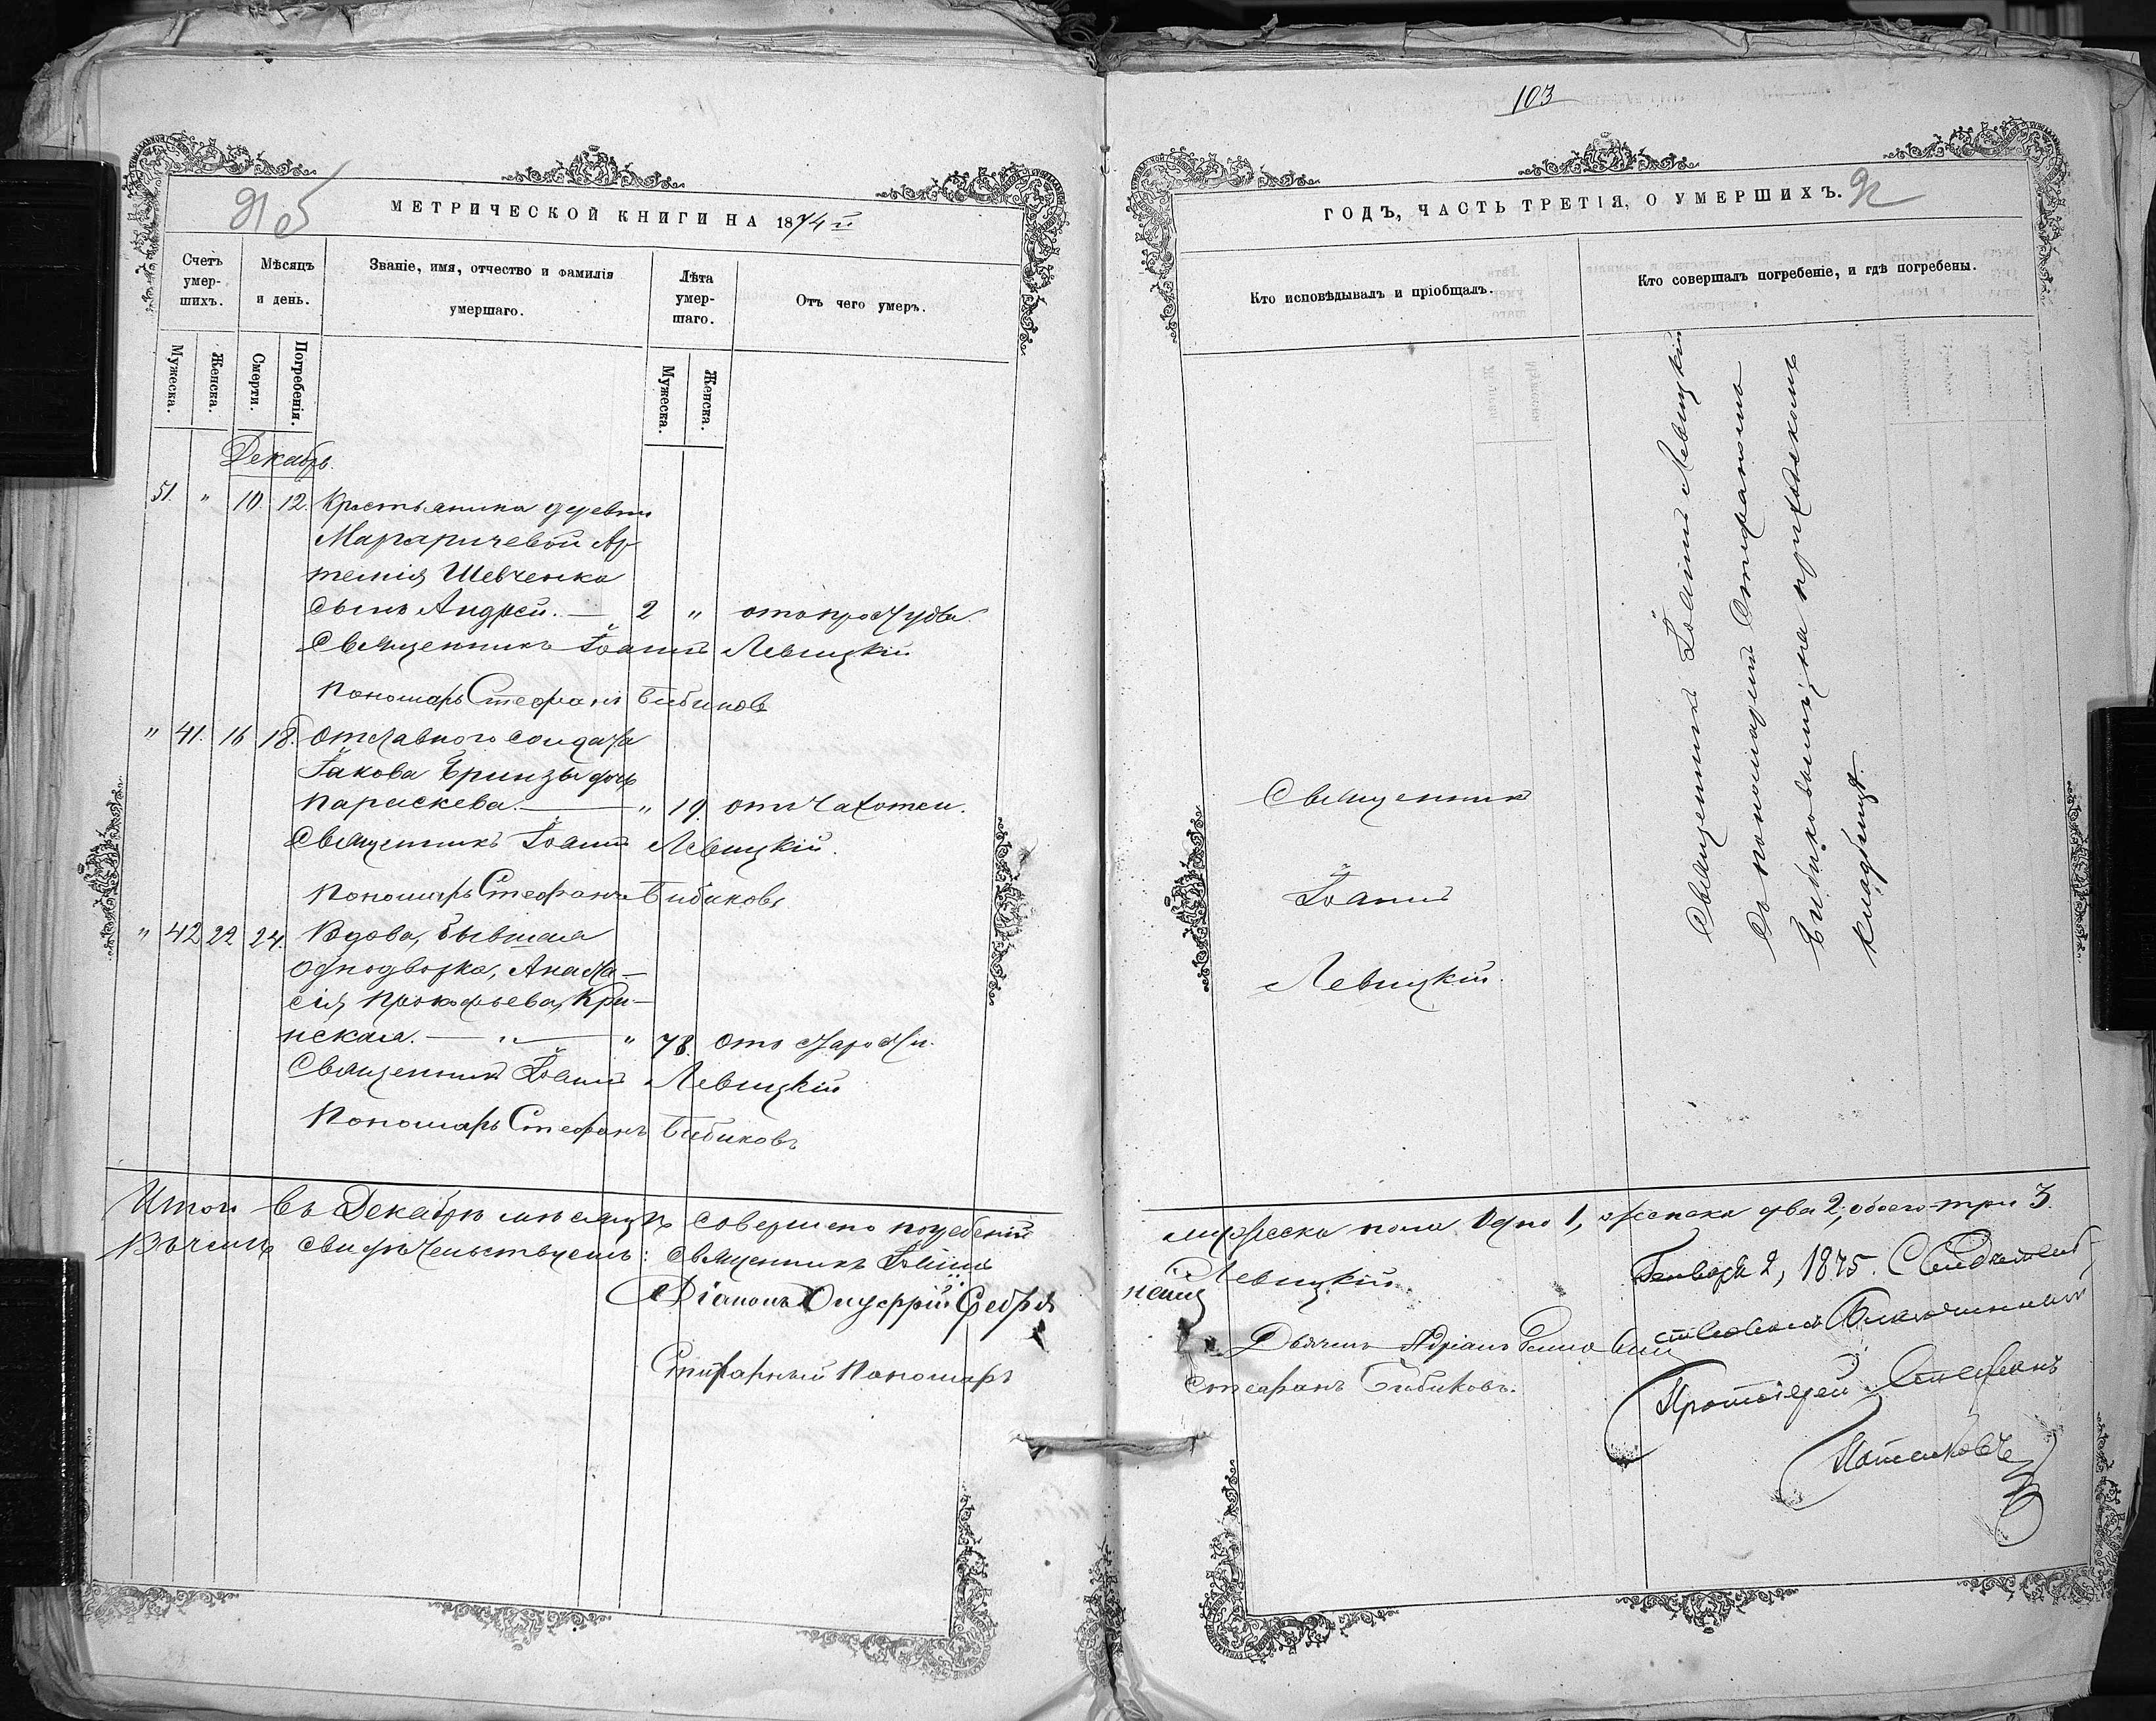 103
91 об
МЕТРИЧЕСКОЙ КНИГИ НА 1874й
Счетъ умер-шихъ.
Мѣсяцъ и день.
Званіе, имя, отчество и фамилія умершаго.
Лѣта умер-шаго.
Отъ чего умеръ.
Мужеска.
Женска.
Смерти.
Погребенія.
Мужеска.
Женска.
Декабрь.
51. " 10 12. Крестьянина деревни
Маргаричевой Ар-
темія Шевченка
сынъ Андрей. — 2 " отъ простуды.
Священникъ Іоаннъ Левицкій
Пономарь Стефанъ Бибиковъ
" 41. 16 18. Отставного солдата
Іакова Бринзы дочь
Параскева. — " 19. отъ чахотки.
Священникъ Іоаннъ Левицкій.
Пономарь Стефанъ Бибиковъ
" 42 22 24. Вдова, бывшая
однодворка, Анаста-
сія Прокофьева, Кри-
нская. — " — " 78. отъ старости.
Священникъ Іоаннъ Левицкій
Пономарь Стефанъ Бибиковъ
Итого въ Декабрѣ мѣсяцѣ совершено погребеній
Въ чемъ свидѣтельствуемъ: Священникъ Іоаннъ
Діаконъ Онуфрій
Стихарный Пономарь
ГОДЪ, ЧАСТЬ ТРЕТІЯ, О УМЕРШИХЪ. 92
Кто исповѣдывалъ и пріобщалъ.
Кто совершалъ погребеніе, и гдѣ погребены.
Священник
Іоаннъ
Левицкій.
Священникъ Іоаннъ Левицкій
Съ пономаремъ Стефаномъ
Бибиковымъ, на приходскомъ
кладбищѣ.
мужеска пола одно 1, женска два 2, обоего три 3.
Левицкій.
Дьячекъ Адріанъ
Стефанъ Бибиковъ.
Генваря 2, 1875. Свидѣтель-
ствовалъ Благочинный
Протоіерей Стефанъ